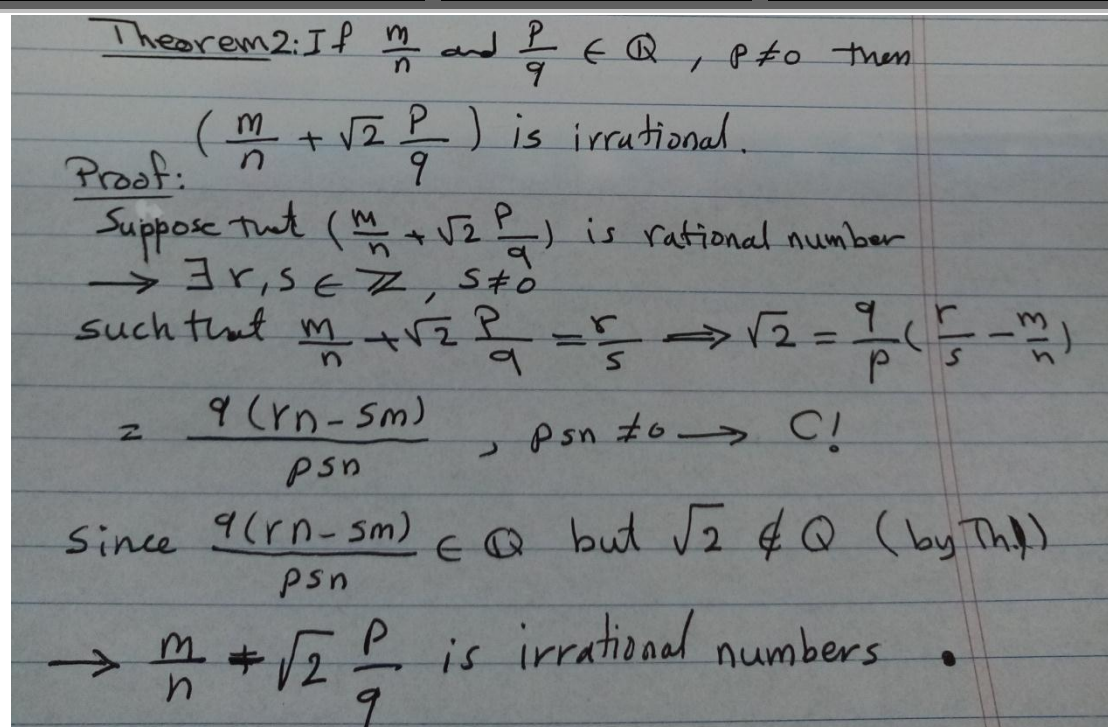 Theorem 2: If m/n and p/q ∈ Q, p ≠ 0 then
(m/n + √2 p/q) is irrational.
Proof:
Suppose that (m/n + √2 p/q) is rational number
→ ∃ r, s ∈ Z, s ≠ 0
such that m/n + √2 p/q = r/s ⟹ √2 = q/p (r/s − m/n)
= q(rn − sm)/psn , psn ≠ 0 → C!
Since q(rn − sm)/psn ∈ Q but √2 ∉ Q (by Th.1)
→ m/n + √2 p/q is irrational numbers .